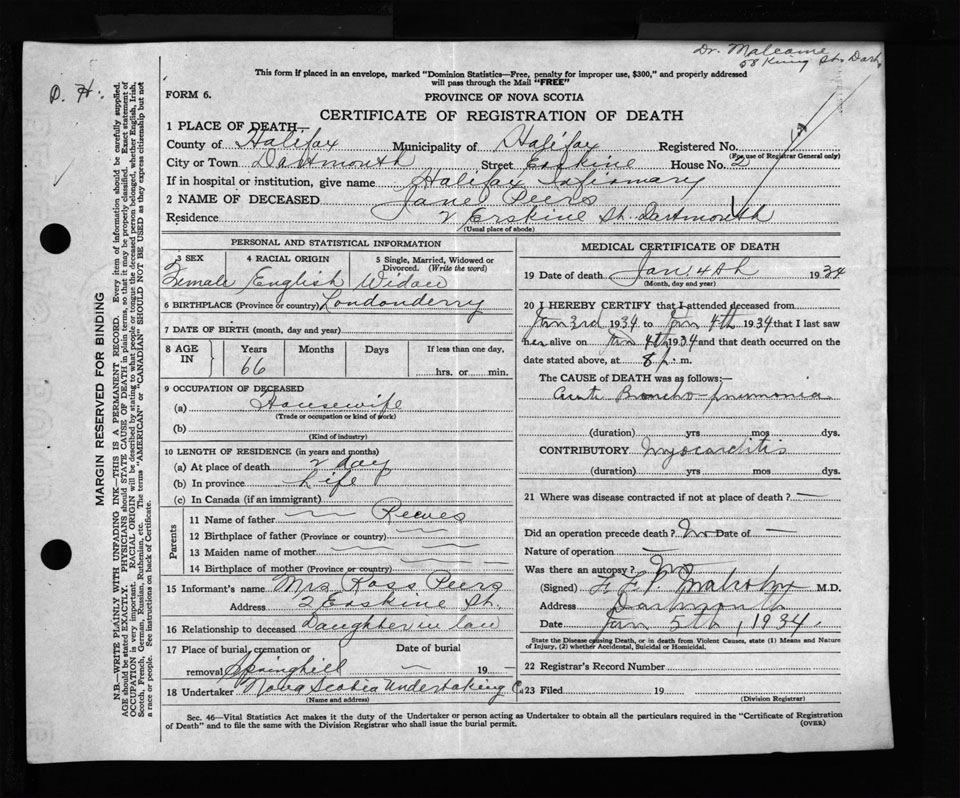 Dr. Malcolme
58 King St. Dart.
D. H.
This form if placed in an envelope, marked "Dominion Statistics—Free, penalty for improper use, $300," and properly addressed
will pass through the Mail "FREE"
FORM 6.
PROVINCE OF NOVA SCOTIA
CERTIFICATE OF REGISTRATION OF DEATH
1 PLACE OF DEATH—
County of Halifax Municipality of Halifax Registered No.
(For use of Registrar General only)
City or Town Dartmouth Street Erskine House No. 2
If in hospital or institution, give name Halifax Infirmary
2 NAME OF DECEASED Jane Peers
Residence 2 Erskine St. Dartmouth
(Usual place of abode)
PERSONAL AND STATISTICAL INFORMATION
3 SEX 4 RACIAL ORIGIN 5 Single, Married, Widowed or
Divorced. (Write the word)
Female English Widow
6 BIRTHPLACE (Province or country) Londonderry
7 DATE OF BIRTH (month, day and year)
8 AGE IN Years Months Days If less than one day,
66 hrs. or min.
9 OCCUPATION OF DECEASED
(a) Housewife
(Trade or occupation or kind of work)
(b)
(Kind of industry)
10 LENGTH OF RESIDENCE (in years and months)
(a) At place of death 2 day
(b) In province Life
(c) In Canada (if an immigrant)
Parents
11 Name of father Reeves
12 Birthplace of father (Province or country)
13 Maiden name of mother
14 Birthplace of mother (Province or country)
15 Informant's name Mrs Ross Peers
Address 2 Erskine St.
16 Relationship to deceased Daughter in law
17 Place of burial, cremation or Date of burial
removal Springhill — 19 —
18 Undertaker Nova Scotia Undertaking Co
(Name and address)
MEDICAL CERTIFICATE OF DEATH
19 Date of death Jan 4th 1934
(Month, day and year)
20 I HEREBY CERTIFY that I attended deceased from
Jan 3rd 1934 to Jan 4th 1934 that I last saw
her alive on Jan 4th 1934 and that death occurred on the
date stated above, at 8 p. m.
The CAUSE OF DEATH was as follows:—
Acute Broncho-pneumonia
(duration) yrs mos dys.
CONTRIBUTORY Myocarditis
(duration) yrs mos dys.
21 Where was disease contracted if not at place of death ? —
Did an operation precede death ? No Date of —
Nature of operation —
Was there an autopsy ? No
(Signed) M.D.
Address Dartmouth
Date Jan 5th, 1934.
State the Disease causing Death, or in death from Violent Causes, state (1) Means and Nature
of Injury, (2) whether Accidental, Suicidal or Homicidal.
22 Registrar's Record Number
23 Filed 19
(Division Registrar)
Sec. 46—Vital Statistics Act makes it the duty of the Undertaker or person acting as Undertaker to obtain all the particulars required in the "Certificate of Registration
of Death" and to file the same with the Division Registrar who shall issue the burial permit.
(OVER)
MARGIN RESERVED FOR BINDING
N.B.—WRITE PLAINLY WITH UNFADING INK—THIS IS A PERMANENT RECORD. Every item of information should be carefully supplied.
AGE should be stated EXACTLY. PHYSICIANS should STATE CAUSE OF DEATH in plain terms, so that it may be properly classified. Exact statement of
OCCUPATION is very important. RACIAL ORIGIN will be described by stating to what people or tongue the deceased person belonged, whether English, Irish,
Scotch, French, German, Russian, Ruthenian, etc. The terms "AMERICAN" or "CANADIAN" SHOULD NOT BE USED as they express citizenship but not
a race or people. See instructions on back of Certificate.